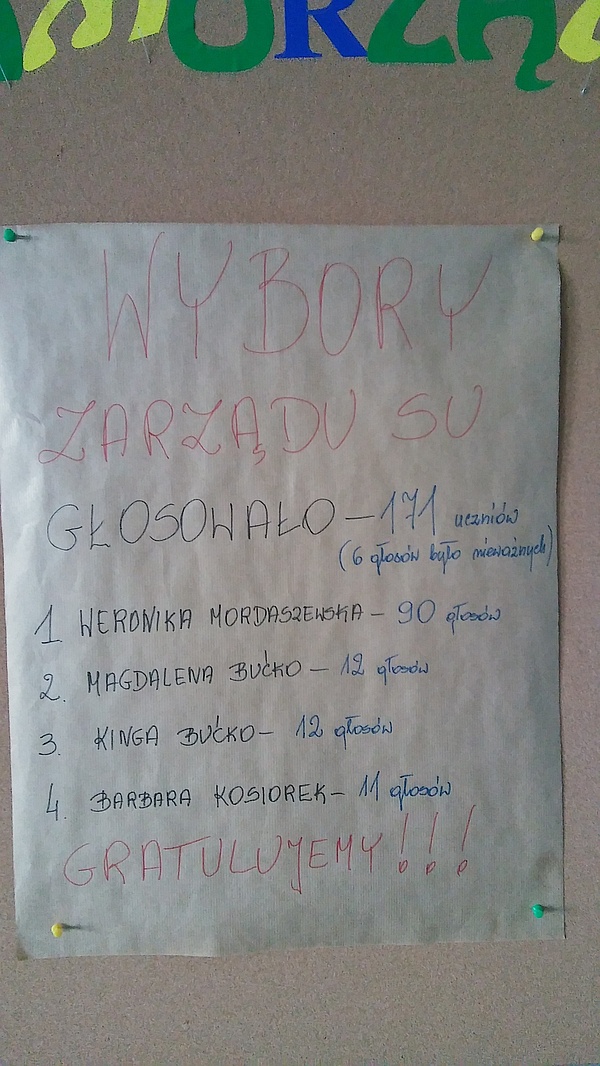 AMORZĄ
WYBORY
ZARZĄDU SU
GŁOSOWAŁO – 171 uczniów
(6 głosów było nieważnych)
1 WERONIKA MORDASZEWSKA – 90 głosów
2. MAGDALENA BUĆKO – 12 głosów
3. KINGA BUĆKO – 12 głosów
4. BARBARA KOSIOREK – 11 głosów
GRATULUJEMY!!!